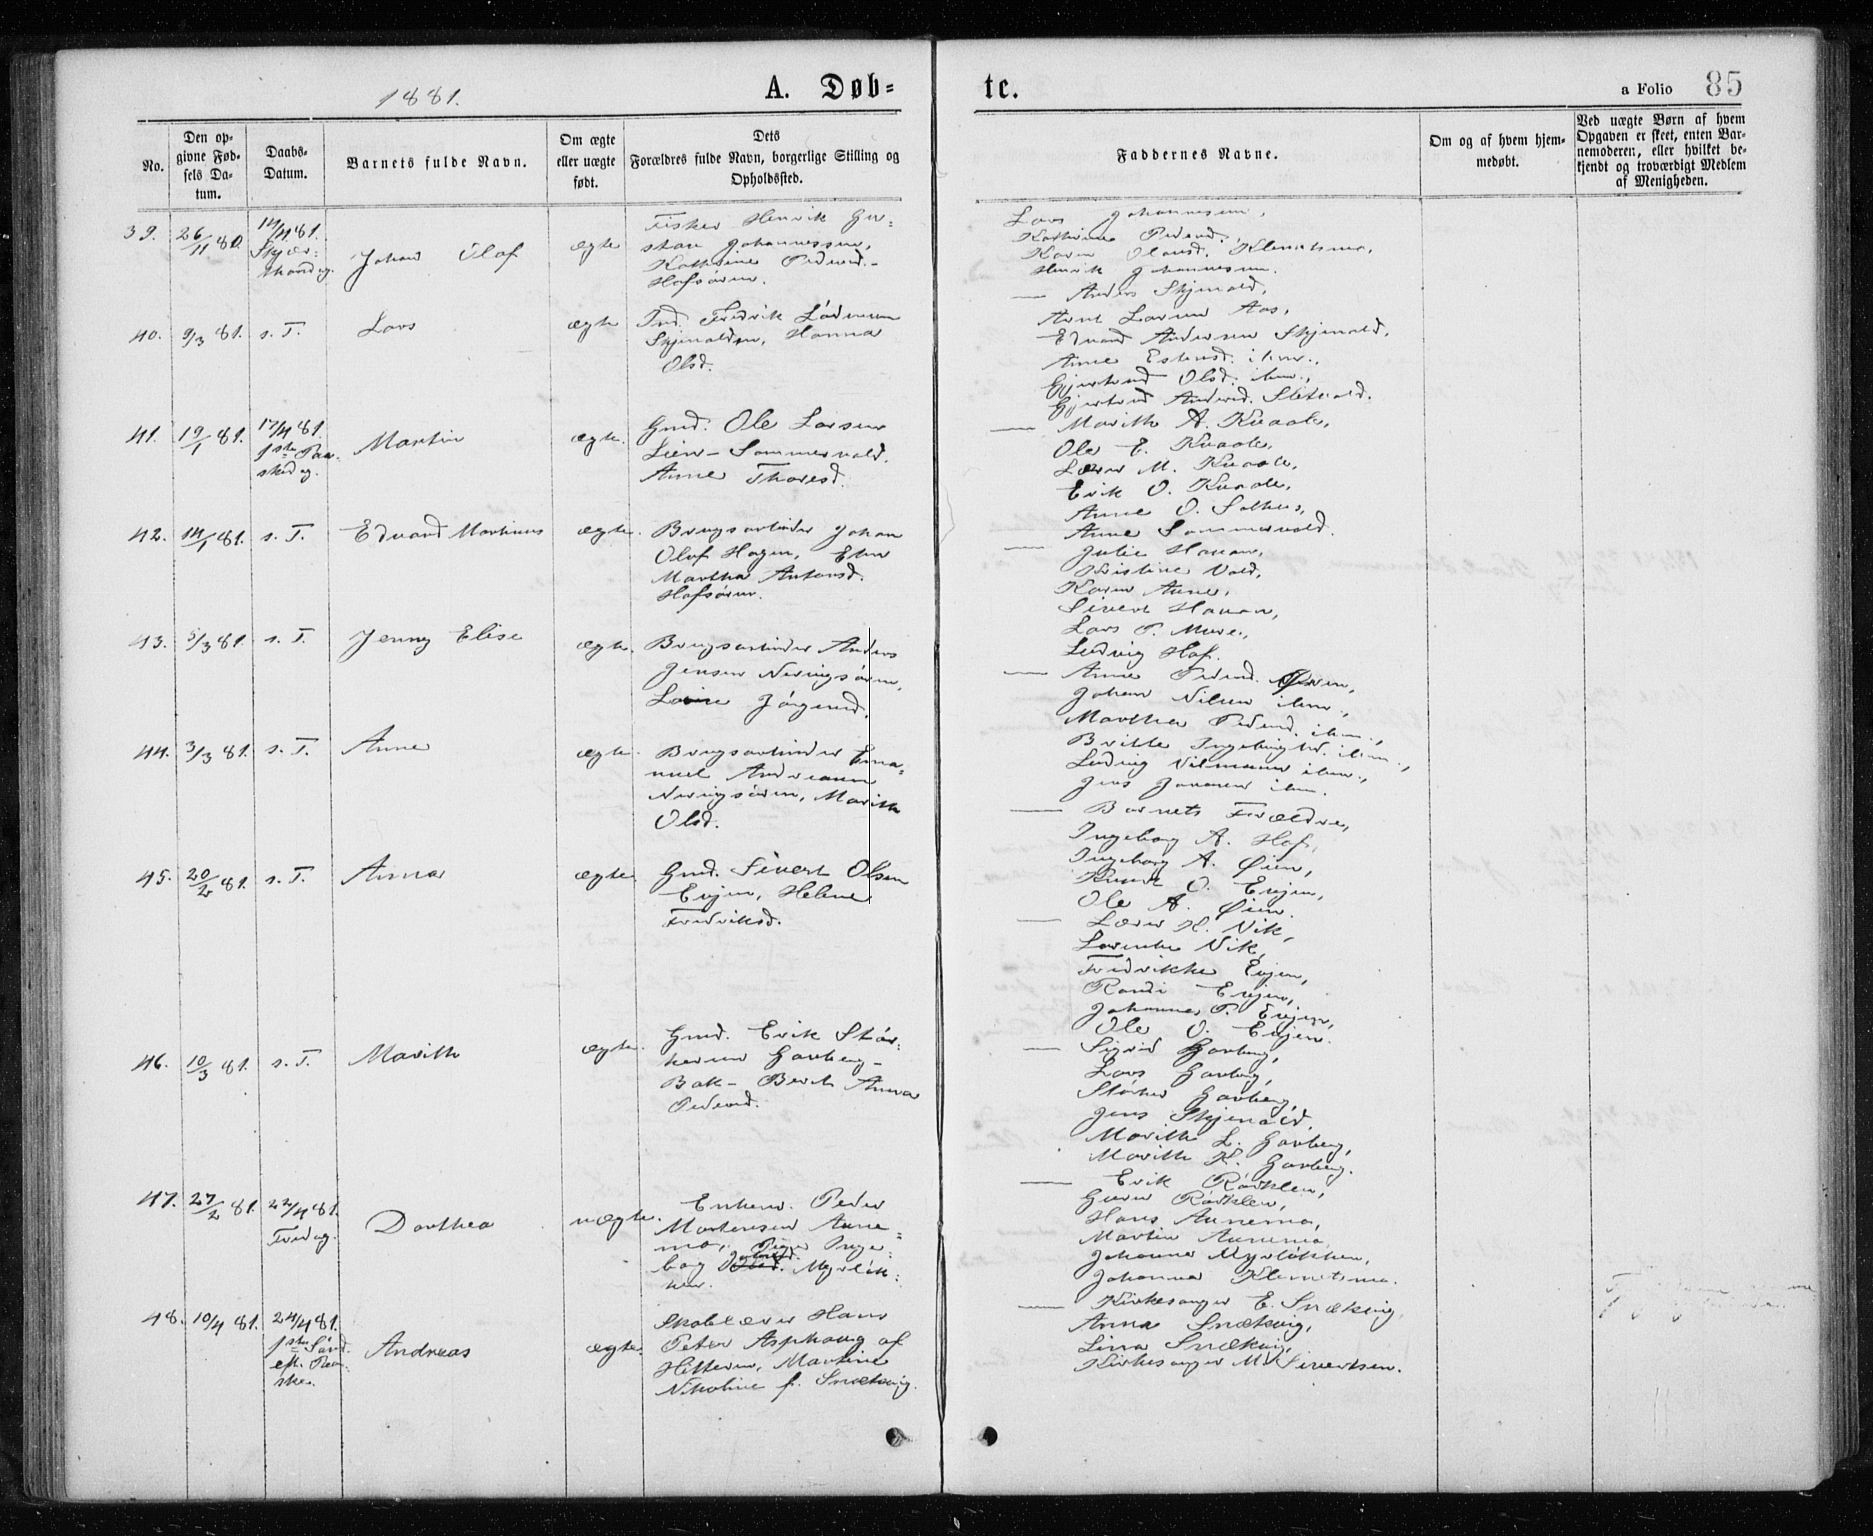 1881.
A. Døb=
te.
a Folio 85
No.
Den op-
givne Fød-
sels Da-
tum.
Daabs-
Datum.
Barnets fulde Navn.
Om ægte
eller uægte
født.
Dets
Forældres fulde Navn, borgerlige Stilling og
Opholdssted.
Faddernes Navne.
Om og af hvem hjem-
medøbt.
Ved uægte Børn af hvem
Opgaven er skeet, enten Bar-
nemoderen, eller hvilket be-
kjendt og troværdigt Medlem
af Menigheden.
39. 26/11 80. 14/4 81.
Skjær-
thorsdag.
Johan Olaf
ægte
Fisker Henrik Gu-
stav Johannessen,
Kathrine Pedersd.
Hofsøren.
Lars Johannesen,
Kathrine Pedersd.
Karen Olausd. Klemetsmo,
Henrik Johannesen.
40. 9/3 81. s. T.
Lars
ægte
Ind. Fredrik
Skjenolden, Hanna
Olsd.
— Anders Skjenald,
Arnt Larsen Aas,
Edvard Andersen Skjenald,
Anne Estensd. ibm.,
Gjertrud Olsd. ibm.,
Gjertrud Andersd. Sletvold.
41. 19/1 81. 17/4 81.
1ste Paa-
skedag.
Martin
ægte.
Gmd. Ole Larsen
Lien- Sommervold,
Anne Thoresd.
— Marith A. Kvaale,
Ole E. Kvaale,
M. Kvaale,
Erik O. Kvaale,
Anne O. Solhus,
Anne Sommervold.
42. 14/1 81. s. T.
Edvard Martinus
ægte.
Brugsarbeider Johan
Olaf Hagen, Elen
Martha Antonsd.
Hofsøren.
— Julie Hanan,
Kristine Vold,
Karen Anne,
Sivert Hanan,
Lars P. More,
Ludvig Hof.
43. 5/3 81. s. T.
Jenny Elise
ægte.
Brugsarbeider Anders
Jensen Neringsøren,
Lovise Jørgensd.
— Anne Pedersd. Øren,
Johan Nilsen ibm.,
Martha Pedersd. ibm.,
Britte Ingebrigtsd. ibm.,
Ludvig Nilmann ibm.,
Jens ibm.
44. 3/3 81. s. T.
Anne
ægte.
Brugsarbeider Ema-
nuel Andreasen
Neringsøren, Marith
Olsd.
— Barnets Forældre,
Ingeborg A. Hof,
Ingeborg A. Øien,
Knut O. Evjen,
Ole A. Øien.
45. 20/2 81. s. T.
Anna
ægte.
Gmd. Sivert Olsen
Evjen, Helene
Fredriksd.
— Lærer K. Vik,
Lorentse Vik,
Fredrikke Evjen,
Randi Evjen,
Johannes P. Evjen,
Ole O. Evjen.
46. 10/3 81. s. T.
Marith
ægte.
Gmd. Erik Stør-
kersen Garberg-
Bak- Berit Anna
Pedersd.
— Sigrid Garberg,
Lars Garberg,
Størker Garberg,
Jens Skjenald,
Marith L. Garberg,
Marith K. Garberg.
47. 27/2 81. 22/4 81.
Fredag.
Dorthea
uægte.
Enkem. Peder
Mortensen Aune-
mo, Pige Inge-
borg Myrløk-
ken.
— Erik Røsklen,
Guru Røsklen,
Hans Aunemo,
Martin Aunemo,
Johanna Myrløkken,
Johanna Klemetsmo.
48. 10/4 81. 24/4 81.
1ste Sønd.
eft. Paa-
ske.
Andreas
ægte.
Skolelærer Hans
Peter Asphaug af
Hitteren, Martine
Nikoline f. Snækvig.
— Kirkesanger E. Snækvig,
Anna Snækvig,
Lina Snækvig,
Kirkesanger M. Sivertsen.